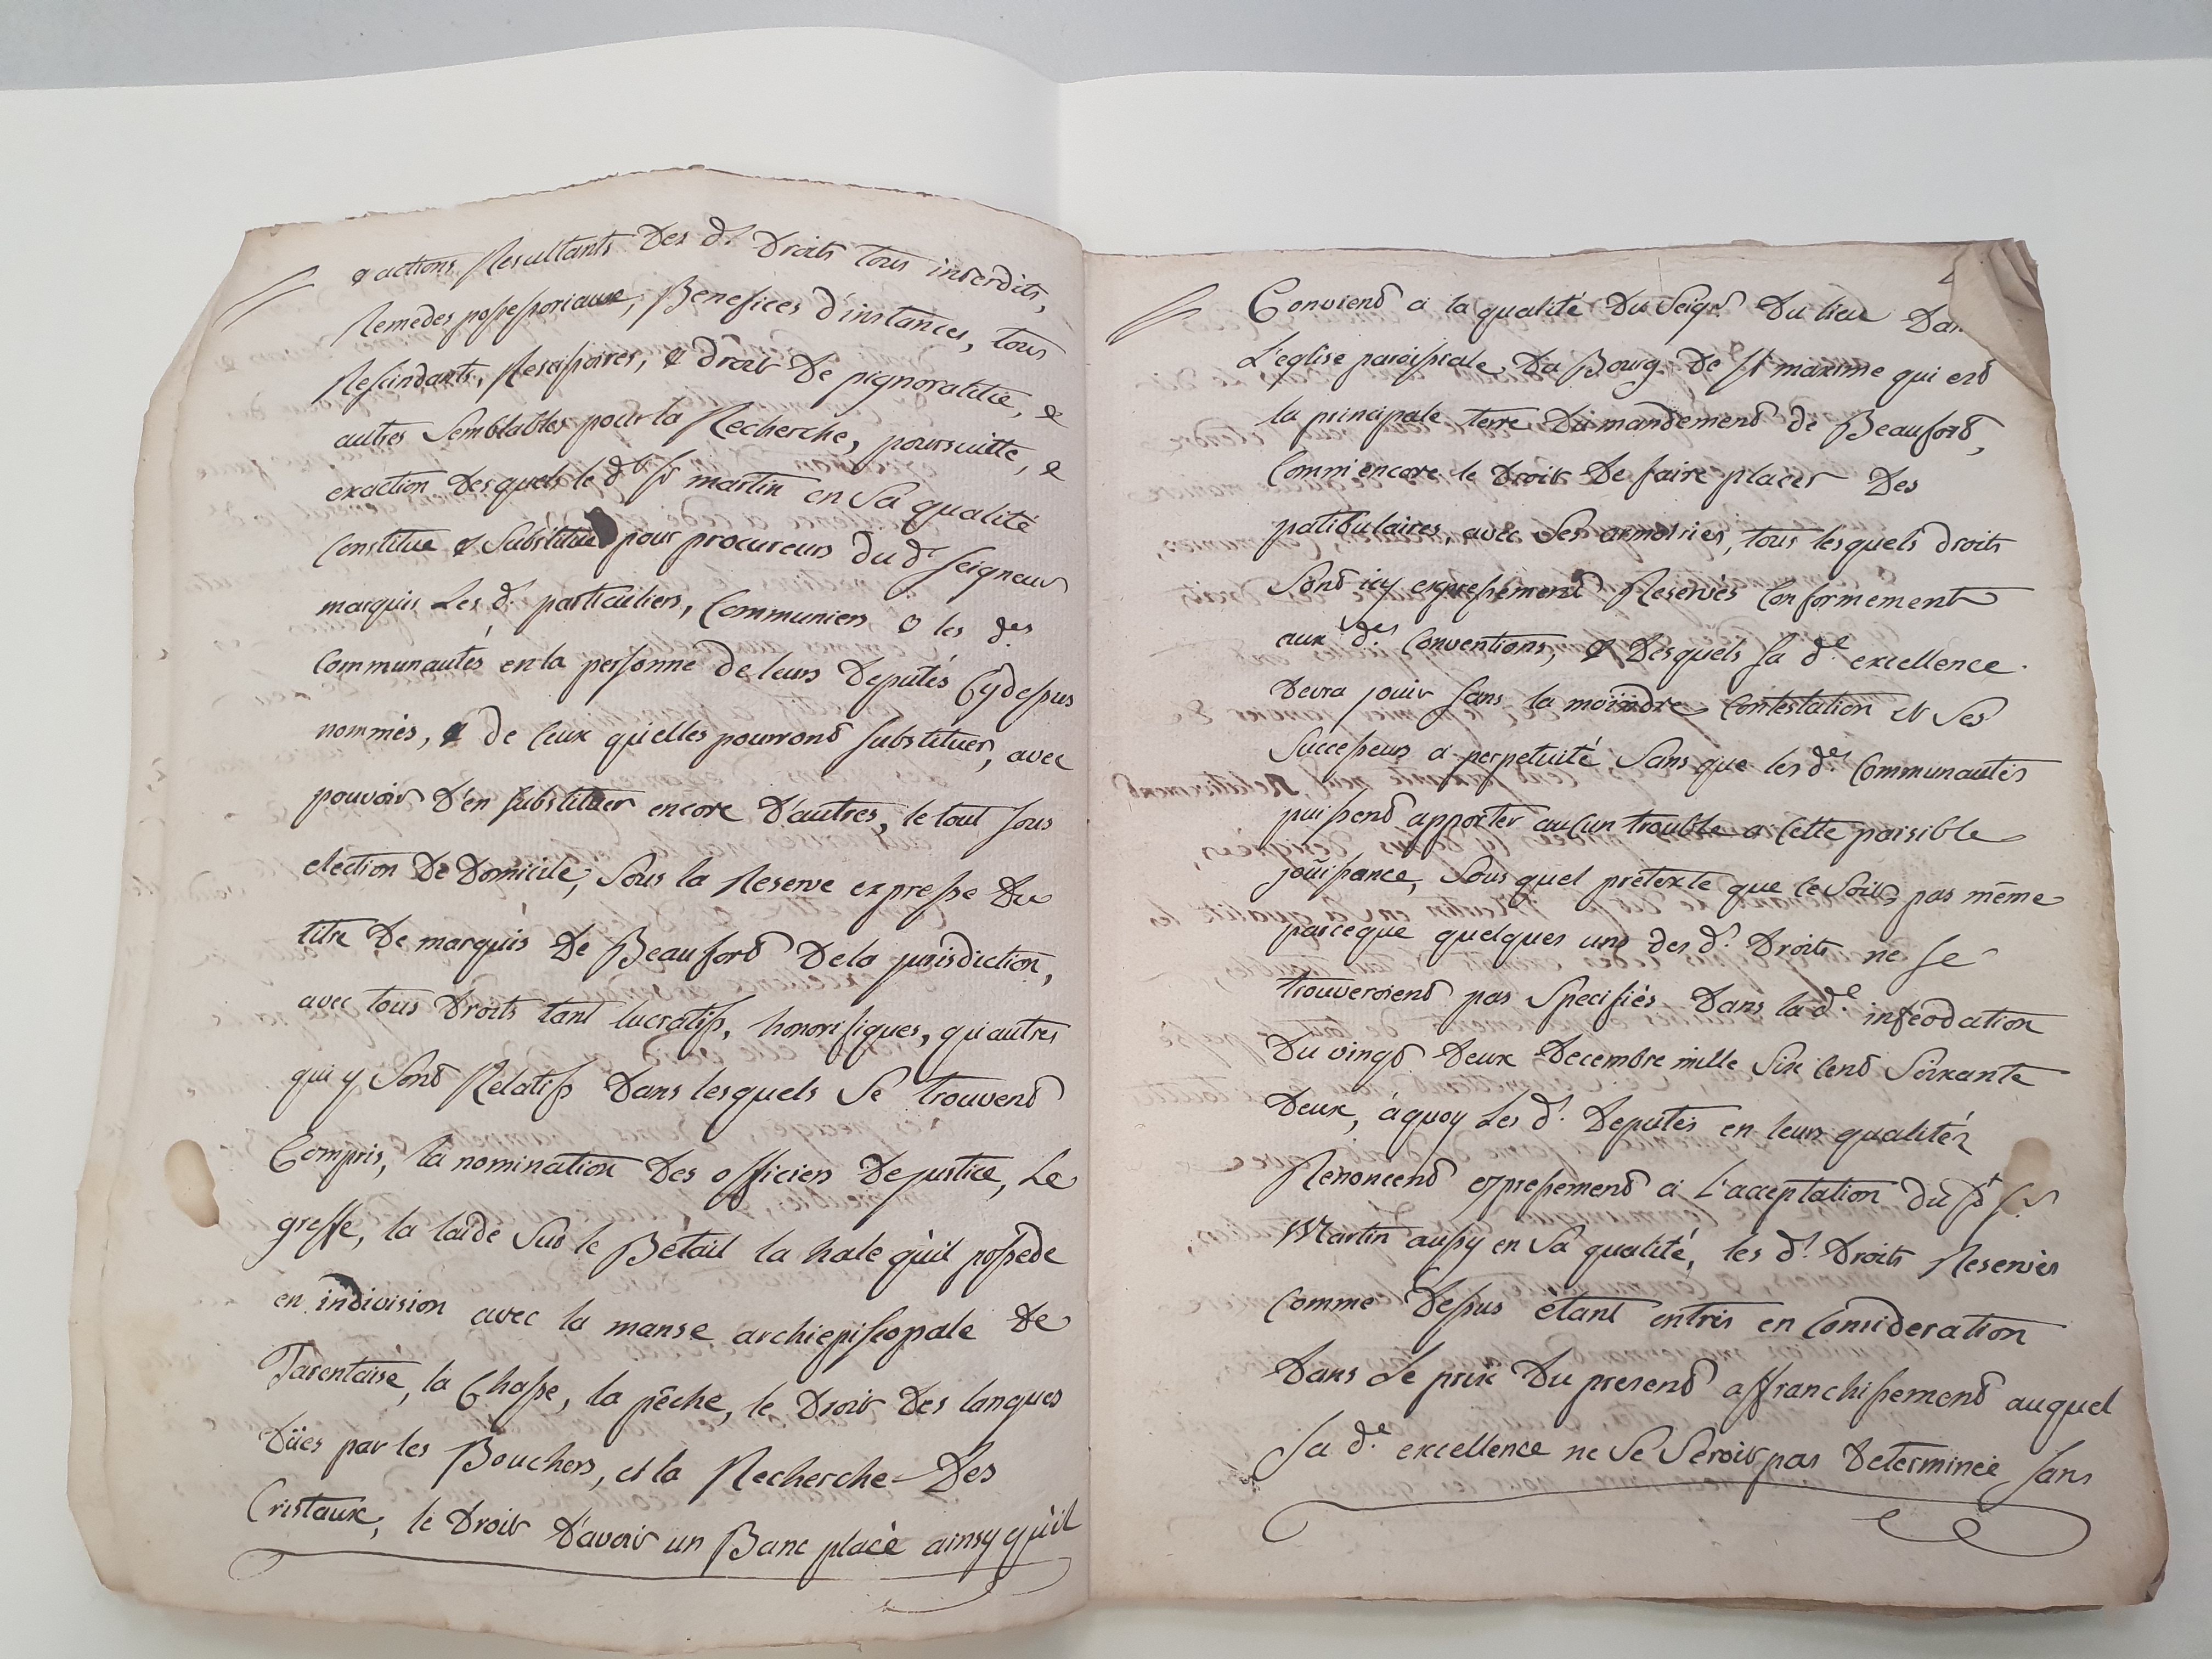 & actions Resultants Des d.s Droits tous interdits,
Remedes possessoriaux, Benefices d'instances, tous
Rescindants, Rescisoires, & droit De pignoratitie, &
autres Semblables pour la Recherche, poursuitte, &
exaction Desquels le d.t Sr martin en Sa qualité
Constitue & Substitue pour procureurs du d.t Seigneur
marquis Les d.s particuliers, Communiers & les d.es
Communautés en la personne de leurs Deputés Cydessus
nommés, & de Ceux qu'elles pourront Substituer, avec
pouvoir D'en Substituer encore D'autres, le tout Sous
election De Domicile, Sous la Reserve expresse Du
titre De marquis De Beaufort De la jurisdiction,
avec tous Droits tant lucratifs, honorifiques, qu'autres
qui y Sont Relatifs Dans lesquels Se trouvent
Compris, la nomination Des officiers De justice, Le
greffe, la laide Sur le Bétail la hale qu'il possede
en indivision avec la manse archiepiscopale De
Tarentaise, la Chasse, la pêche, le Droit Des langues
Dües par les Bouchers, et la Recherche Des
Cristaux, le Droit D'avoir un Banc placé ainsy qu'il
Convient a la qualité Du Seigr. Du lieu Dan
L'eglise paroissiale Du Bourg De St maxime qui est
la principale terre Du mandement de Beaufort,
Comm'encore le Droit De faire placer Des
patibulaires, avec Ses armoiries, tous lesquels droits
Sont icy expressement Reservés Conformement
aux d.es Conventions, & Desquels Sa d.e excellence
Devra jouir Sans la moindre Contestation et Ses
Successeurs a perpetuité Sans que les d.es Communautés
puissent apporter aucun trouble a Cette paisible
joüissance, Sous quel prétexte que ce Soit, pas même
parceque quelques uns des d.s Droits ne Se
trouveroient pas Specifiés Dans la d.e infeodation
Du vingt Deux Decembre mille Six Cent Soixante
Deux, à quoy Les d.s Deputés en leurs qualités
Renoncent expressement a L'acceptation du d.t Sr
Martin aussy en Sa qualité, les d.s Droits Reservés
Comme Dessus étant entrés en Consideration
Dans Le prix Du present affranchissement auquel
Sa d.e excellence ne Se Seroit pas Determinée Sans